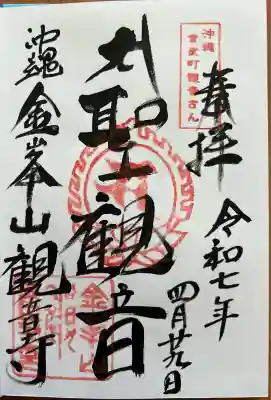 奉拝
沖縄
金武町観音さん
令和七年
四月廿九日
聖観音
沖縄
金峯山観音寺